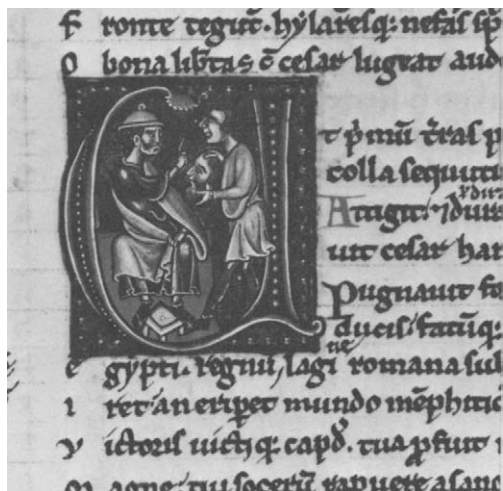 f ronte tegut· hylaresq: nefas sp
O bona lib̄tas c̄ cesar lugeat aud
V t p̄mū t̄ras p
colla sequuti
Attigit· ⁊ dur
uit cesar har
Pugnauit fo
ducis· fatūq·
e gypti· regnū lagi romana su
i ret an eripet mundo mēphitic
v ictoris uictiq: capđ· tua pfuit
M agne· tui socerū rapuere a san